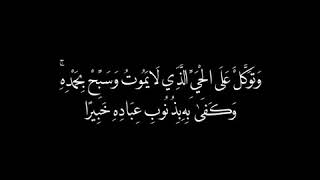 وَتَوَكَّلْ عَلَى الْحَيِّ الَّذِي لَا يَمُوتُ وَسَبِّحْ بِحَمْدِهِ ۚ
وَكَفَىٰ بِهِ بِذُنُوبِ عِبَادِهِ خَبِيرًا